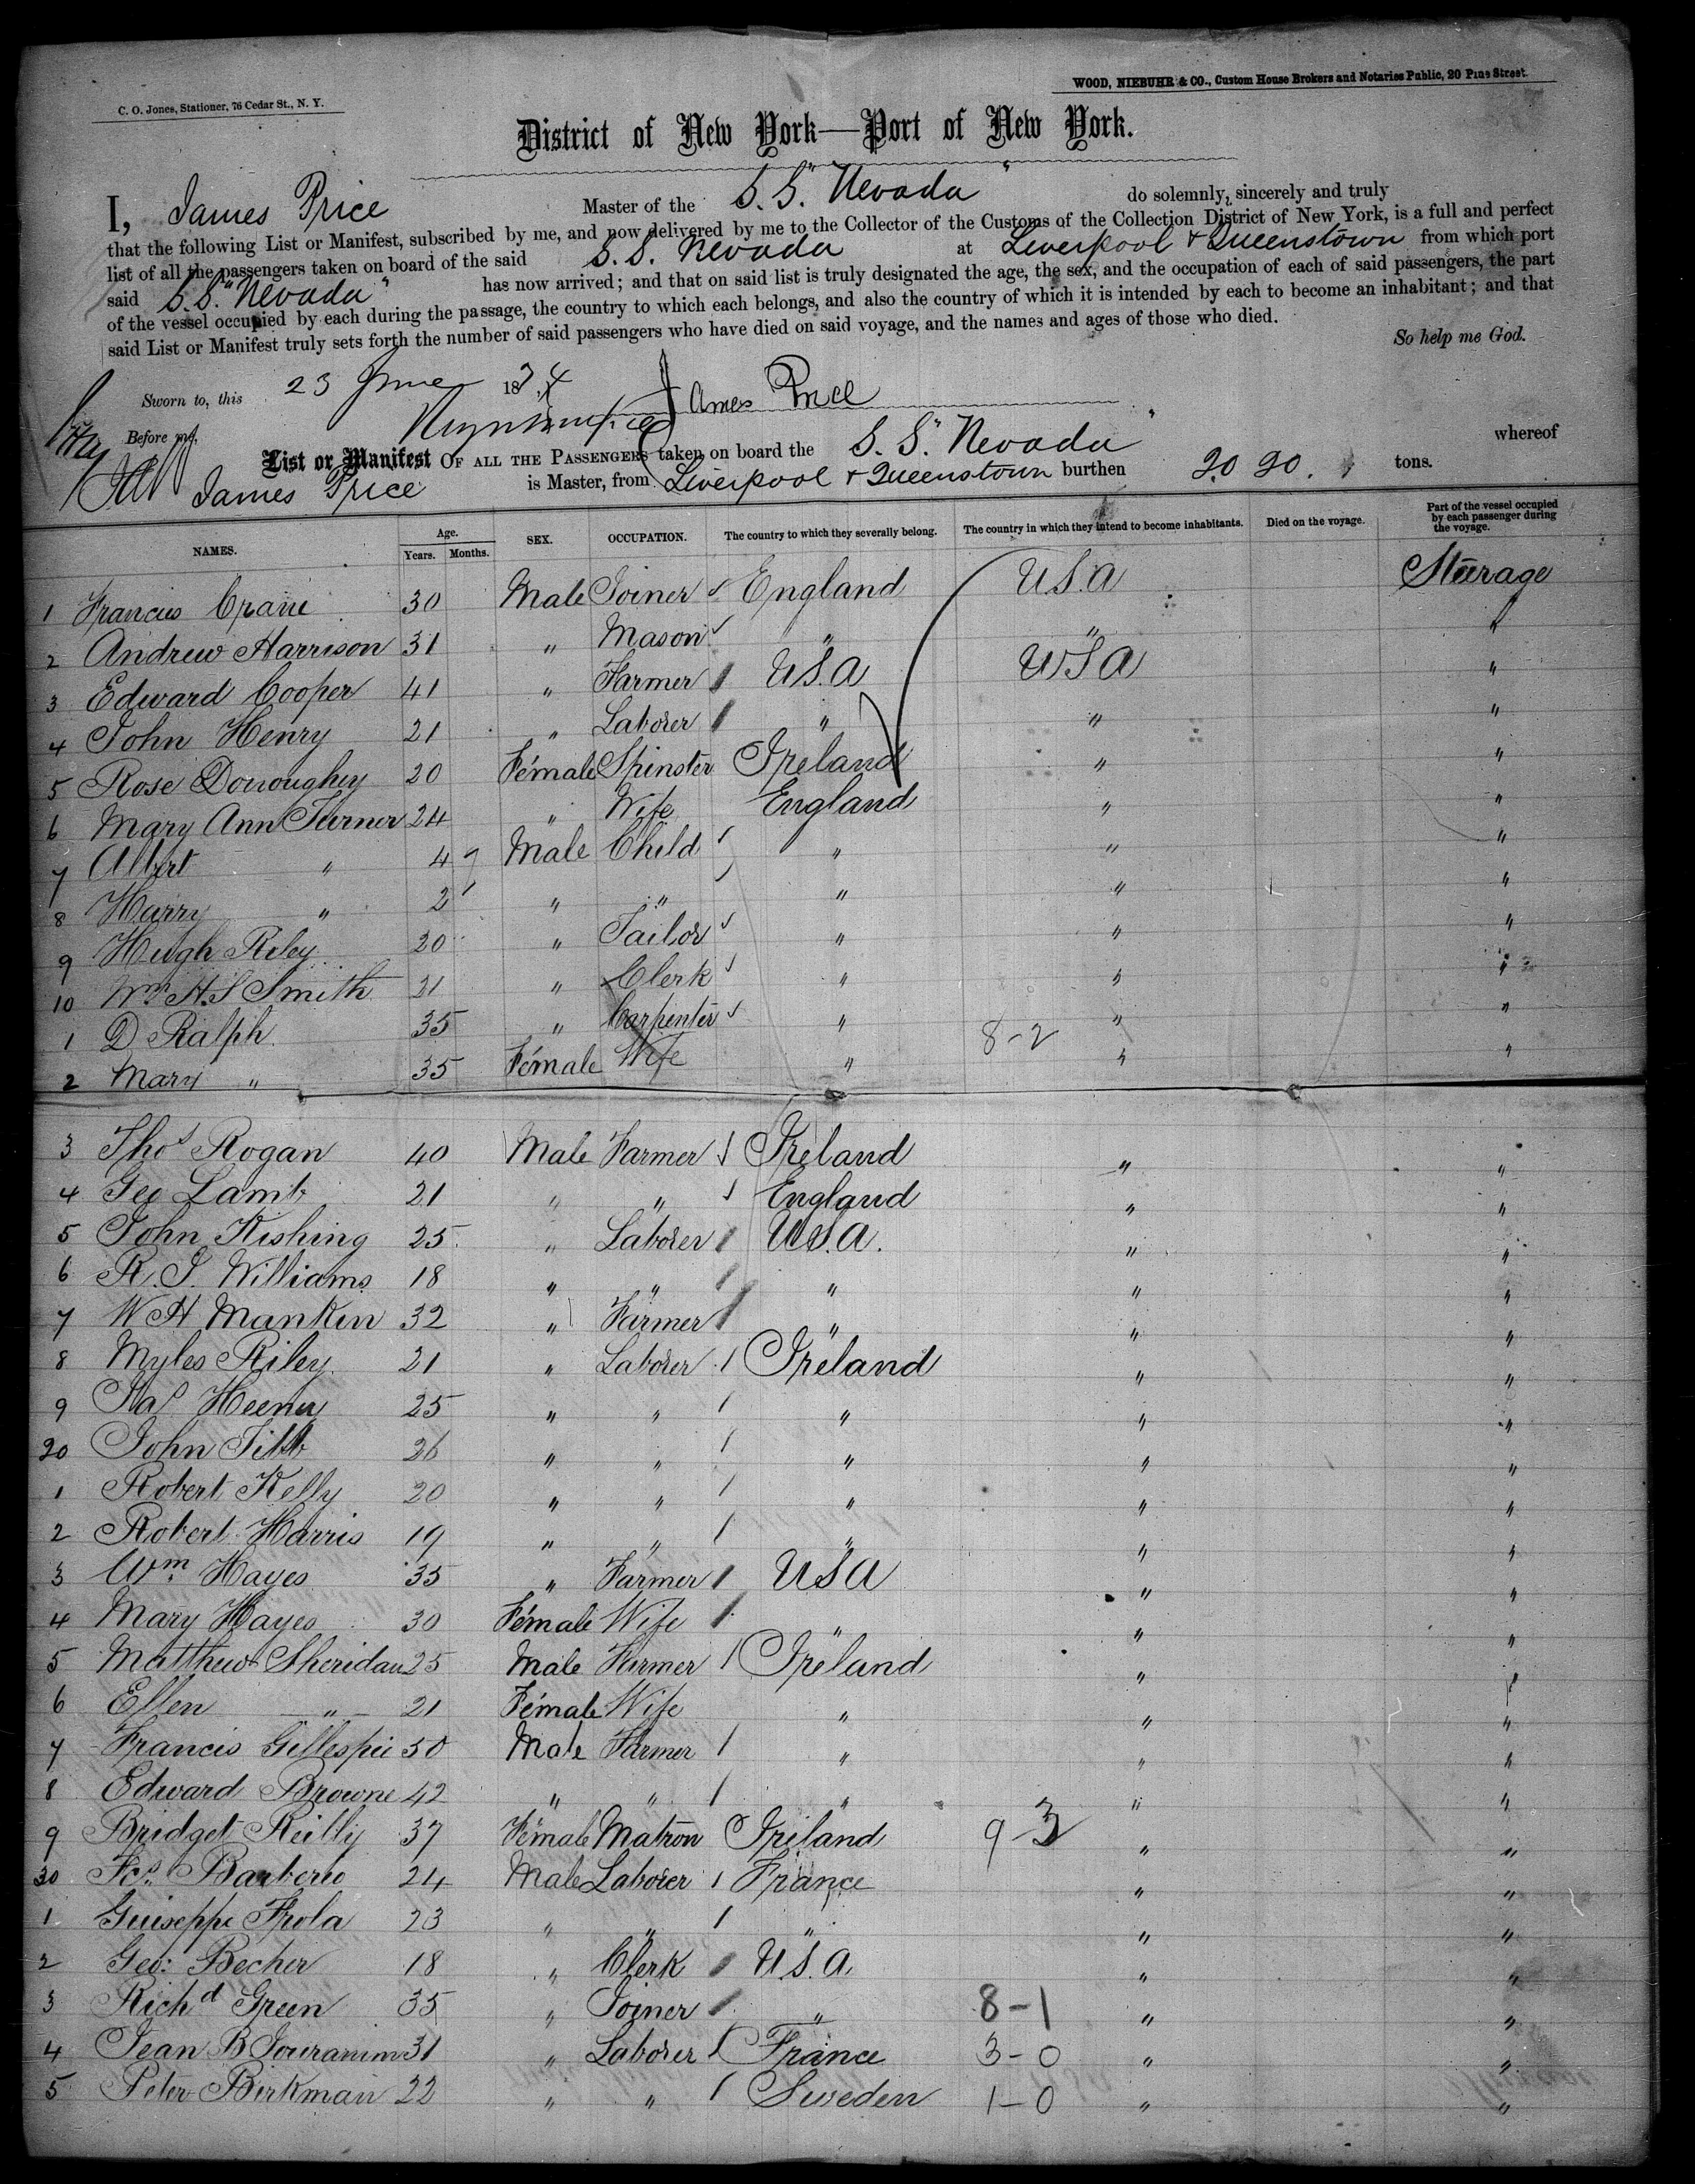 C. O. Jones, Stationer, 76 Cedar St., N. Y.
WOOD, NIEBUHR & CO., Custom House Brokers and Notaries Public, 20 Pine Street.
District of New York—Port of New York.
I, James Price Master of the S.S. "Nevada" do solemnly, sincerely and truly
that the following List or Manifest, subscribed by me, and now delivered by me to the Collector of the Customs of the Collection District of New York, is a full and perfect
list of all the passengers taken on board of the said S.S. Nevada at Liverpool & Queenstown from which port
said S.S. "Nevada" has now arrived; and that on said list is truly designated the age, the sex, and the occupation of each of said passengers, the part
of the vessel occupied by each during the passage, the country to which each belongs, and also the country of which it is intended by each to become an inhabitant; and that
said List or Manifest truly sets forth the number of said passengers who have died on said voyage, and the names and ages of those who died.
So help me God.
Sworn to, this 23 June 1874 James Price
Before me,
List or Manifest OF ALL THE PASSENGERS taken on board the S. S. "Nevada" whereof
James Price is Master, from Liverpool & Queenstown burthen 2020. tons.
NAMES. Age. Years. Months. SEX. OCCUPATION. The country to which they severally belong. The country in which they intend to become inhabitants. Died on the voyage. Part of the vessel occupied by each passenger during the voyage.
1 Francis Crane 30 Male Joiner England U.S.A Steerage
2 Andrew Harrison 31 " Mason " " "
3 Edward Cooper 41 " Farmer U.S.A U.S.A "
4 John Henry 21 " Laborer " " "
5 Rose Dorroughey 20 Female Spinster Ireland " "
6 Mary Ann Turner 24 " Wife England " "
7 Albert " 4 Male Child " " "
8 Harry " 2 " " " " "
9 Hugh Riley 20 " Tailor " " "
10 Wm H.S Smith 21 " Clerk " " "
1 D Ralph 35 " Carpenter " 8-2 " "
2 Mary " 35 Female Wife " " "
3 Thos Rogan 40 Male Farmer Ireland " "
4 Geo Lamb 21 " " England " "
5 John Kishing 25 " Laborer U.S.A. " "
6 R. J. Williams 18 " " " " "
7 W H Mankin 32 " Farmer " " "
8 Myles Riley 21 " Laborer Ireland " "
9 Jas Heeney 25 " " " " "
20 John 26 " " " " "
1 Robert Kelly 20 " " " " "
2 Robert Harris 19 " " " " "
3 Wm. Hayes 35 " Farmer U.S.A " "
4 Mary Hayes 30 Female Wife " " "
5 Matthew Sheridan 25 Male Farmer Ireland " "
6 Ellen " 21 Female Wife " " "
7 Francis Gillespie 30 Male Farmer " " "
8 Edward Browne 42 " " " " "
9 Bridget Reilly 37 Female Matron Ireland 9-3 " "
30 Fcs. Barberio 24 Male Laborer France " "
1 Guiseppe Frola 23 " " " " "
2 Geo: Becher 18 " Clerk U.S.A " "
3 Richd Green 35 " Joiner " 8-1 " "
4 Jean B 31 " Laborer France 3-0 " "
5 Peter Birkman 22 " " Sweden 1-0 " "